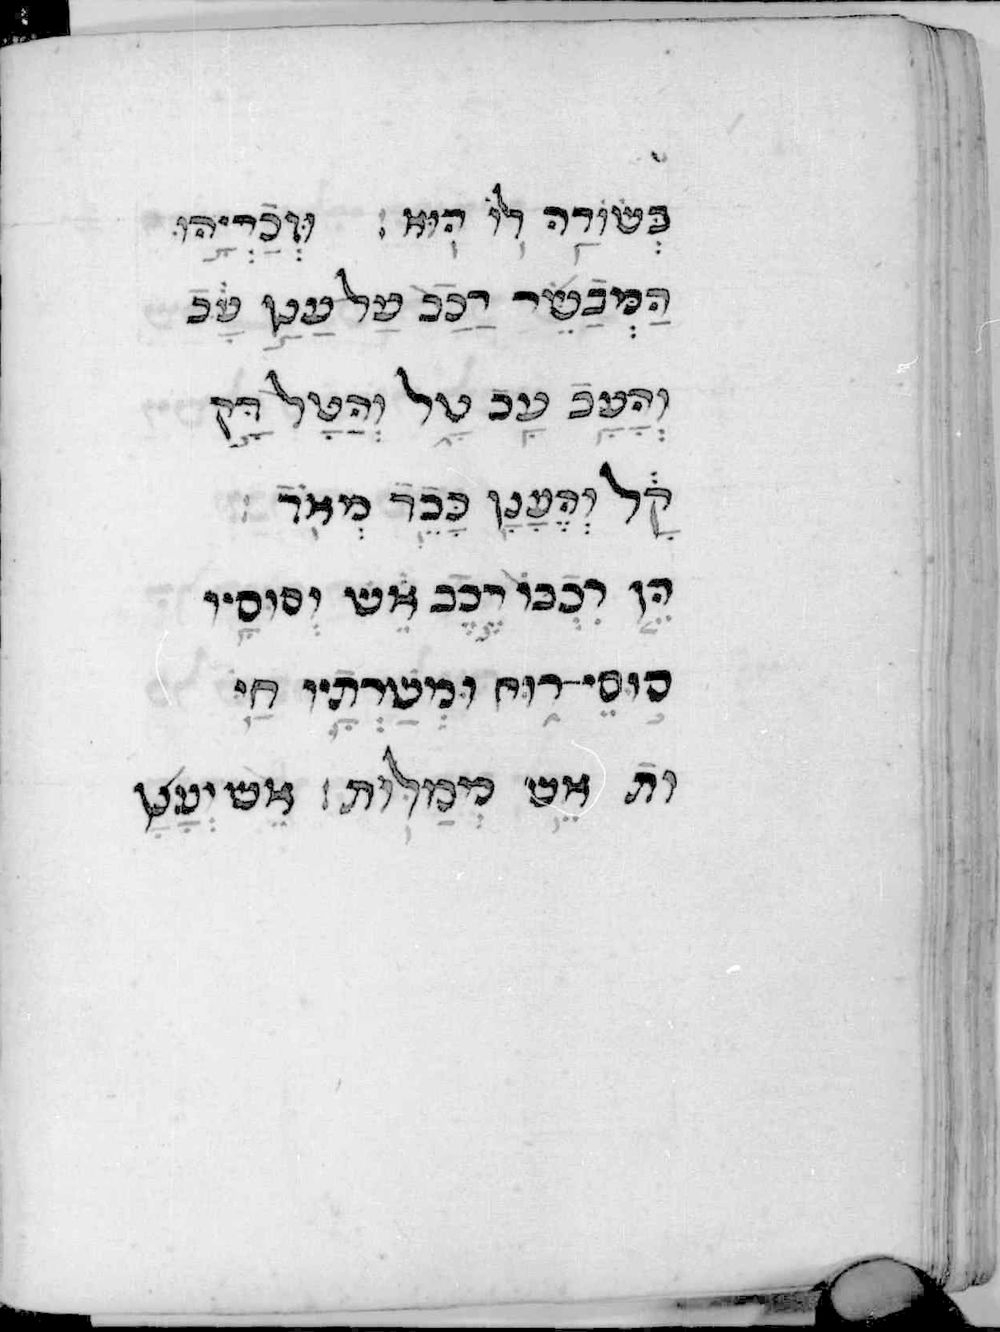 בְּשׂוֹרָה לוֹ הִיא׃ וּזְכַרְיָהוּ
הַמְּבַשֵּׂר רַכַּב עַל עַנַן עָב
וְהָעָב עַב טָל וְהַטָּל דַּק
קַל וְהֶעָנָן כָּבֵד מְאֹד׃
הֵן רִכְבּוֹ רֶכֶב אֵשׁ וְסוּסָיו
סוּסֵי־רוּחַ וּמְשָׁרְתָיו חַיּ
וֹת אֵשׁ מְמַלְּלוֹת׃